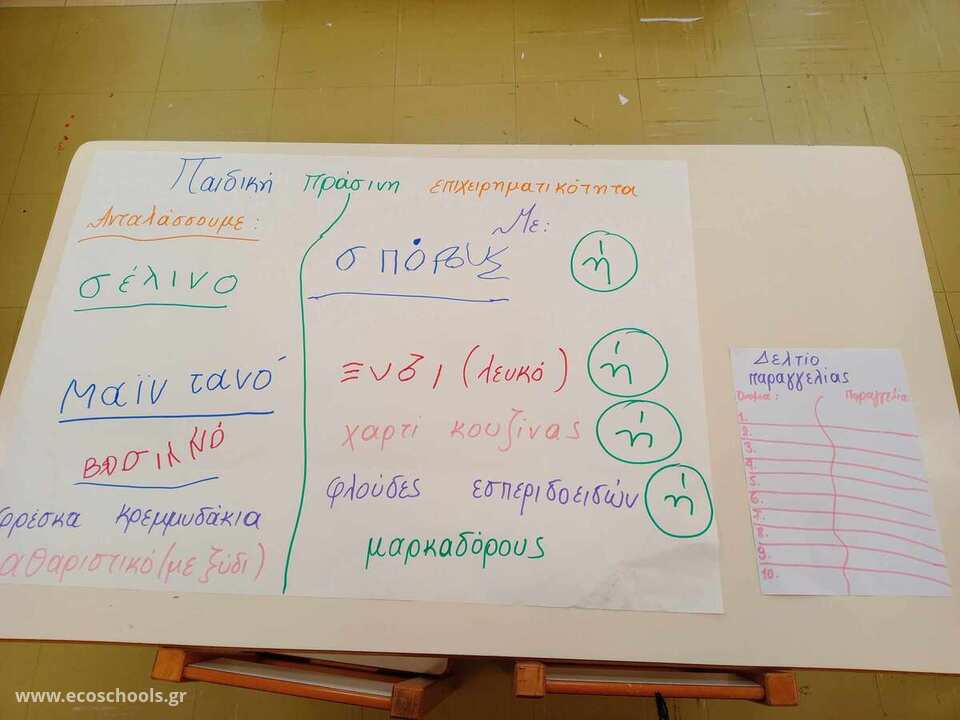 Παιδική πράσινη επιχειρηματικότητα
Ανταλάσσουμε:
σέλινο
μαϊντανό
βασιλικό
φρέσκα κρεμμυδάκια
αθαριστικό (με ξύδι)
Με:
σπόρους ή
ξυδι (λευκό) ή
χαρτί κουζίνας ή
φλούδες εσπεριδοειδών ή
μαρκαδόρους
Δελτίο
παραγγελίας
Όνομα: Παραγγελία
1.
2.
3.
4.
5.
6.
7.
8.
9.
10.
www.ecoschools.gr